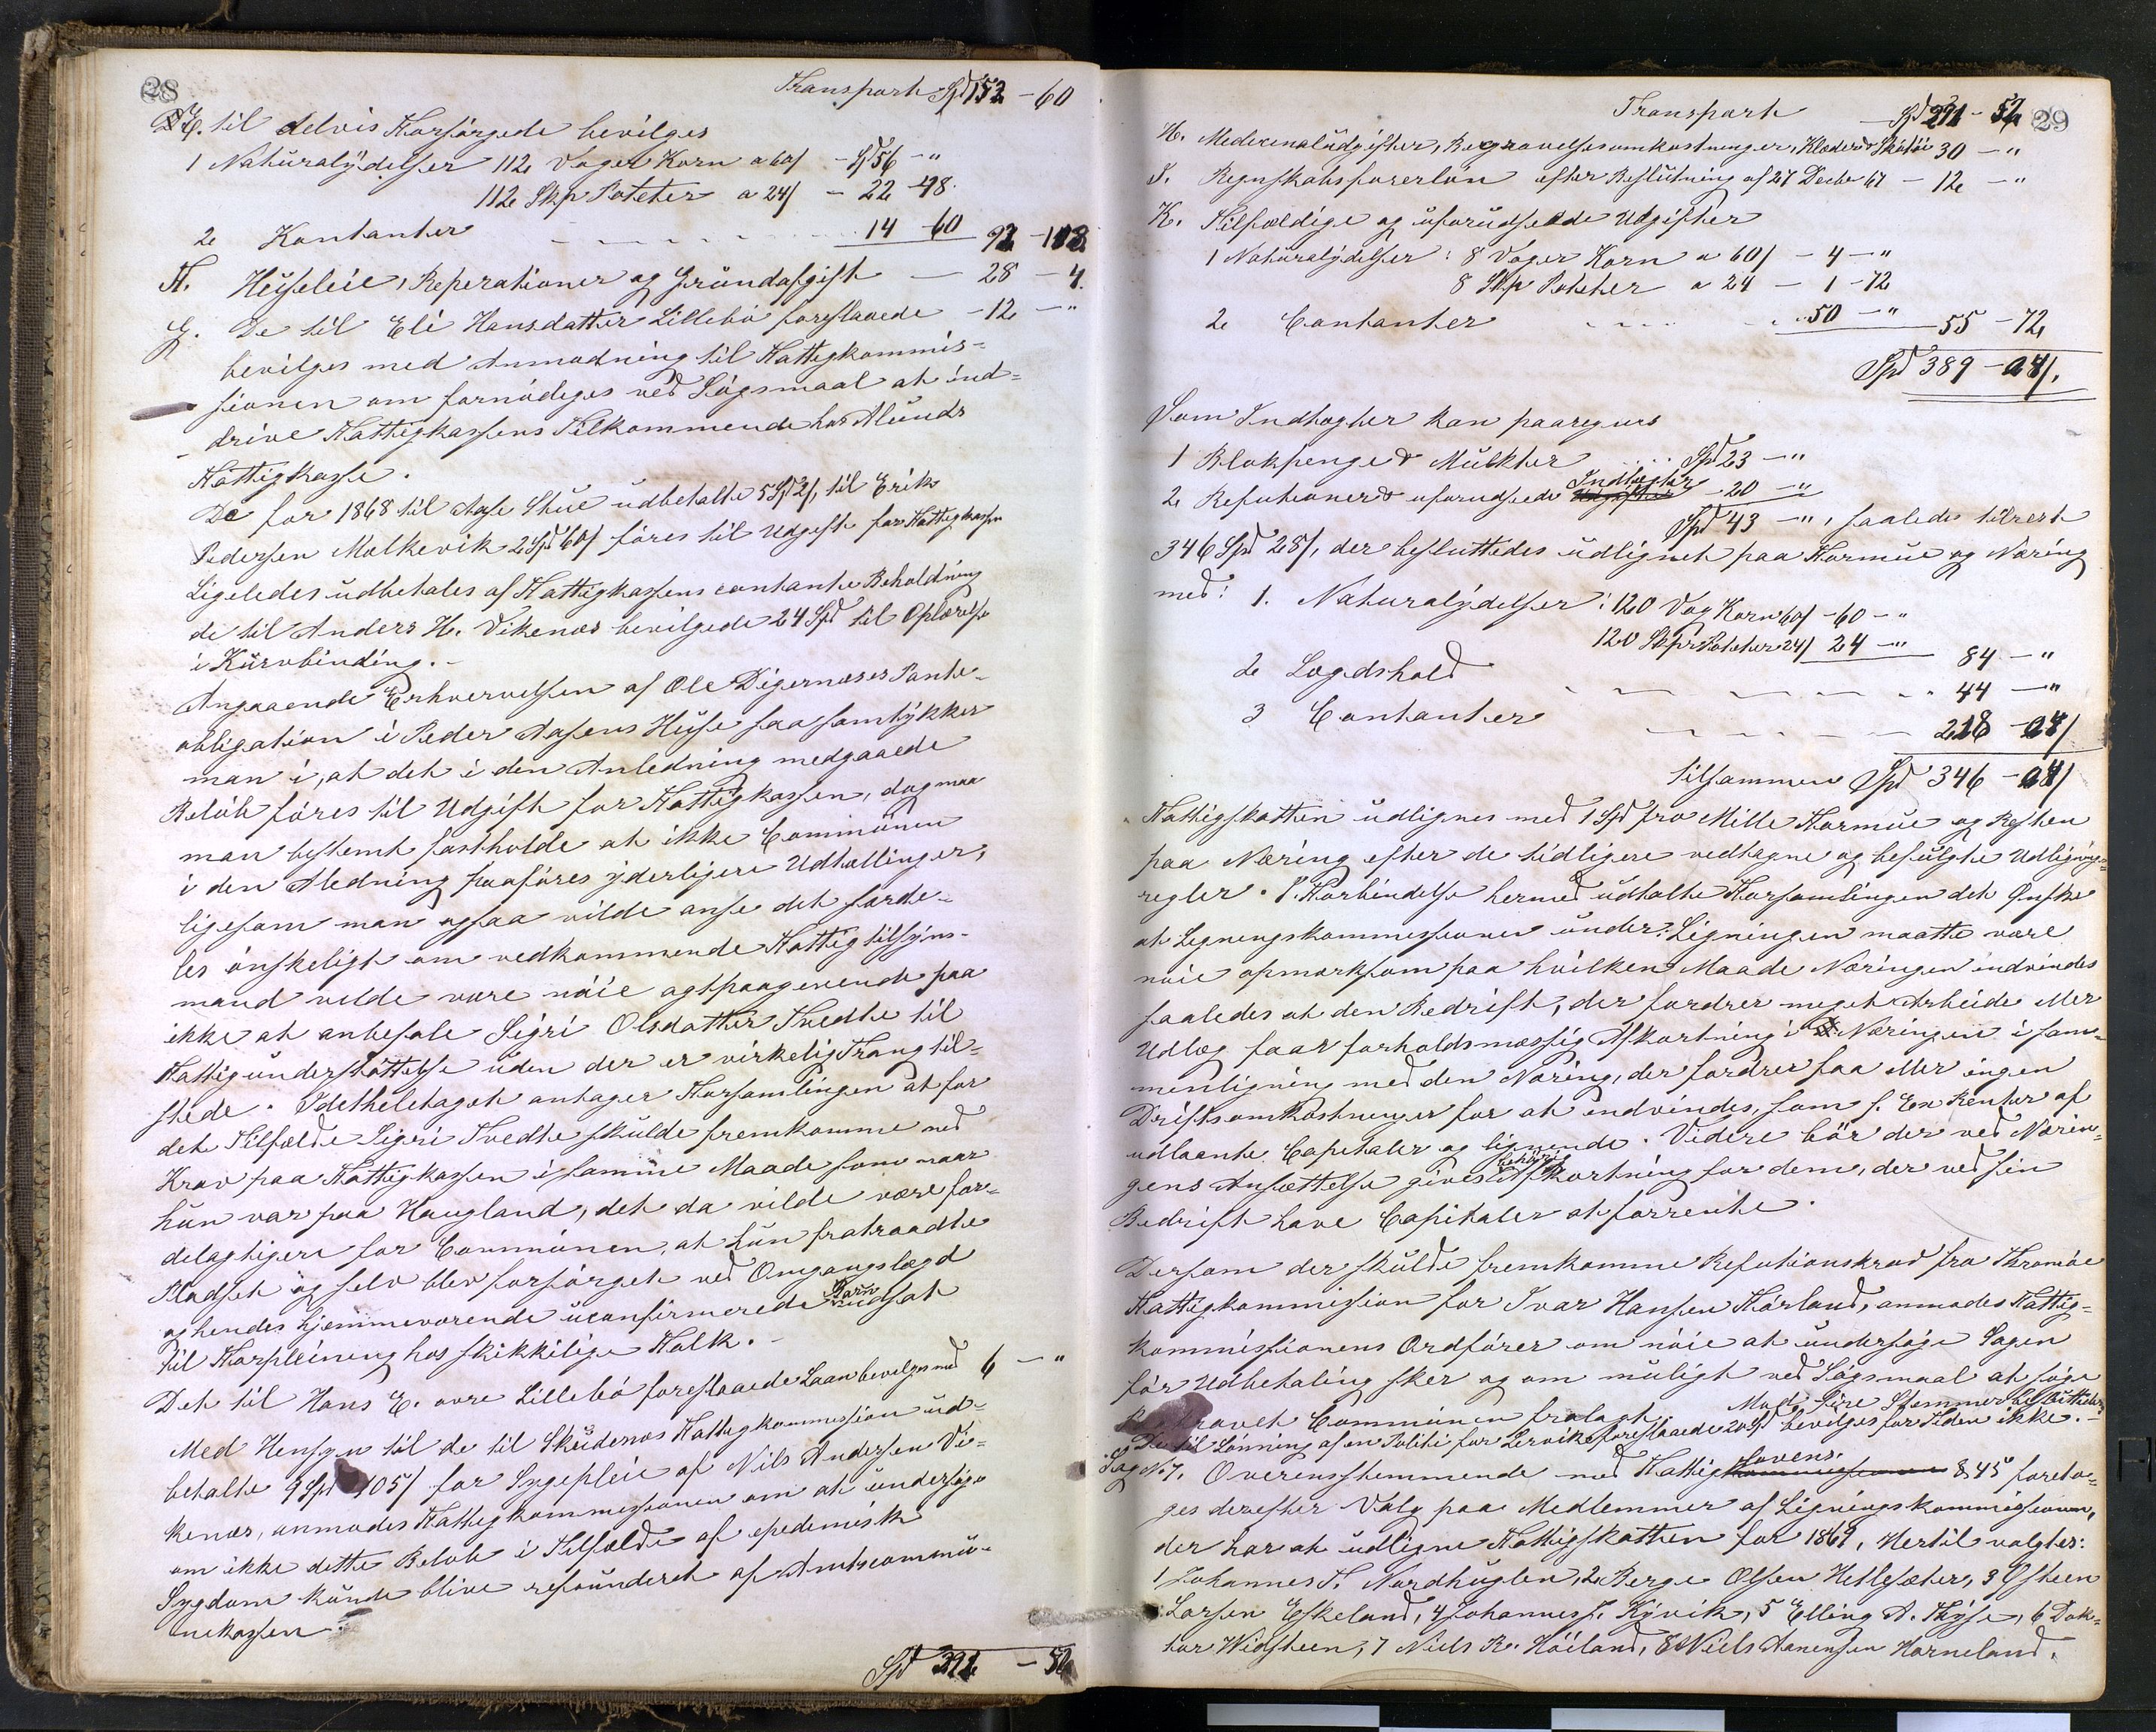 28
Transport Spd 152 - 60
E. til delvis Forsørgede bevilges
1 Naturalydelser 112 Voger Korn a 60/ - Spd 56 - "
112 Skp Poteter a 24/ - 22 - 48
2 Kontanter 14 60 93 - 108
F. Husleie, Reperationer og Grundafgift - 28 - 4
G. De til Eli Hansdatter Lillebø foreslaaede - 12 - "
bevilges med Anmodning til Fattigkommis-
sionen om fornødiges ved Søgsmaal at ind-
drive Fattigkassens Tilkommende hos Alunds
Fattigkasse.
De for 1868 til Aase Stue udbetalte 5 Spd 2/, til Erik
Pedersen Molkevik 2 Spd 60/ føres til Udgift for Fattigkassen
Ligeledes udbetales af Fattigkassens contante Beholdning
de til Anders H. Vikenes bevilgede 24 Spd til Oplærelse
i Kurvbinding. -
Angaaende Erhvervelsen af Ole Digernæses Pante-
obligation i Peder Aasens Huse saa samtykker
man i, at det i den Anledning medgaaede
Beløb føres til Udgift for Fattigkassen, dog maa
man bestemt fastholde at ikke Communen
i den Aledning paaføres yderligere Udtællinger,
ligesom man ogsaa vilde anse det særde-
les ønskeligt om vedkommende Fattigtilsyns-
mand vilde være nøie agtpaagivende paa
ikke at anbefale Sigri Olsdatter Tvedte til
Fattigunderstøttelse uden der er virkelig Trang til-
stede. Idetheletaget antager Forsamlingen at for
det Tilfælde Sigri Tvedte skulde fremkomme med
Krav paa Fattigkassen i samme Maade som naar
hun var paa Haugland, det da vilde være for-
delagtigere for Communen, at hun fratraadte
Pladset og selv blev forsørget ved Omgangslægd
og hendes hjemmeværende uconfirmerede Børn udsat
til Forpleining hos skikkelige Folk. -
Det til Hans E. øvre Lillebø foreslaaede Laan bevilges med 6 - "
Med Hensyn til de til Skudenes Fattigkommission ud-
betalte 9 Spd 105/ for Sygepleie af Nils Andersen Vi-
kenes, anmodes Fattigkommissionen om at undersøge
om ikke dette Beløb i Tilfælde af epedemisk
Sygdom kunde blive refunderet af Amtscommu-
nekassen.
Spd 292 - 52
29
Transport Spd 291 - 52
H. Medecinaludgifter, Begravelsesomkostninger, Klæder & Skotøi 30 - "
I. Regnskabsførerløn efter Beslutning af 27 Decbr 67 - 12 - "
K. Tilfældige og uforudseede Udgifter
1 Naturalydelser: 8 Voger Korn a 60/ - 4 - "
8 Skp Poteter a 24 - 1 - 72
2 Contanter 50 - " 55 - 72
Spd 389 - 28/.
Som Indtægter kan paaregnes
1 Blokpenge & Mulkter Spd 23 - "
2 Refutioner & uforudseede Indtægter - 20 - "
Spd 43 - ", saaledes tilrest
346 Spd 28/, der besluttedes udlignet paa Formue og Næring
med: 1. Naturalydelser: 120 Vog Korn 60/ - 60 - "
120 Skpr Poteter 24/ 24 - " 84 - "
2 Lægdshold 44 - "
3 Contanter 218 - 28/
Tilsammen Spd 346 - 28/
Fattigskatten udlignes med 1 Spd pro Mille Formue og Resten
paa Næring efter de tidligere vedtagne og befulgte Udlignings-
regler. I Forbindelse hermed udtalte Forsamlingen det Ønske
at Ligningskommissionen under Ligningen maatte være
nøie opmærksom paa hvilken Maade Næringen indvindes
saaledes at den Bedrift, der fordrer meget Arbeide eller
Udlæg faar forholdsmæssig Afkortning i Næringen i sam-
menligning med den Næring, der fordrer faa eller ingen
Driftsomkostninger for at indvindes, som f. Ex Renter af
udlaante Capitaler og lignende. Videre bør der ved Nærin-
gens Ansættelse gives behørig Afkortning for dem, der ved sin
Bedrift have Capitaler at forrente.
Dersom der skulde fremkomme Refutionskrav fra Thromøe
Fattigkommission for Ivar Hansen Førland, anmodes Fattig-
kommissionens Ordfører om nøie at undersøge Sagen
før Udbetaling sker og om muligt ved Søgsmaal at søge
Communen fralagt. Mod fire Stemmer besluttedes:
De til Lønning af en Politi for Lervik foreslaaede 20 Spd bevilges for Tiden ikke. -
Sag No 7. Overensstemmende med Fattiglovens § 45 foreta-
ges derefter Valg paa Medlemmer af Ligningskommissionen,
der har at udligne Fattigskatten for 1869, Hertil valgtes:
1 Johannes T. Nordhuglen, 2 Berge Olsen Hetlesæter, 3 Østeen
Larsen Eskeland, 4 Johannes J. Kyvik, 5 Elling A. Thyse, 6 Dok-
tor Widsteen, 7 Niels R. Høiland, 8 Niels Aanensen Horneland.